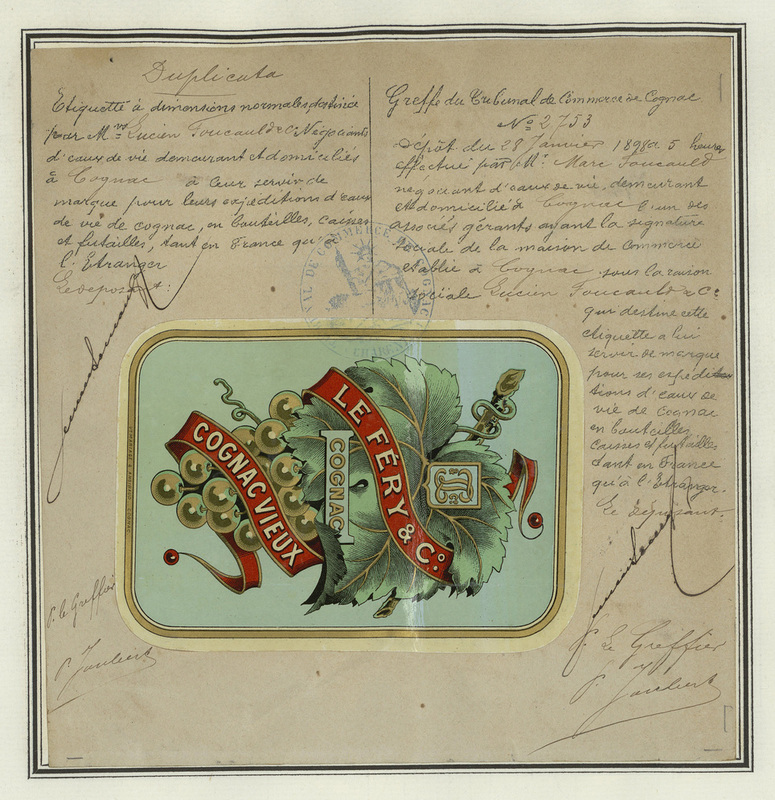 Duplicata
Etiquette à dimensions normales destinée
par M.rs Lucien Foucauld & Cie Négociants
d'eaux de vie demeurant et domiciliés
à Cognac à leur servir de
marque pour leurs expéditions d'eaux
de vie de cognac, en bouteilles, caisses
et futailles, tant en France qu'à
l'Etranger
Le déposant:
P. le Greffier
P. Joubert
Greffe du Tribunal de Commerce de Cognac
No 2753
Dépôt du 28 Janvier 1898 à 5 heures
effectué par M. Marc Foucauld
négociant d'eaux de vie, demeurant
et domicilié à Cognac l'un des
associés gérants ayant la signature
sociale de la maison de Commerce
établie à Cognac sous la raison
sociale Lucien Foucauld & Cie
qui destine cette
étiquette à lui
servir de marque
pour ses expédi-
tions d'eaux de
vie de cognac
en bouteilles
caisses et futailles
tant en France
qu'à l'Etranger.
Le déposant.
P. Le Greffier
P. Joubert
TRIBUNAL DE COMMERCE DE COGNAC
CHARENTE
LE FÉRY & Co.
COGNAC
COGNAC VIEUX